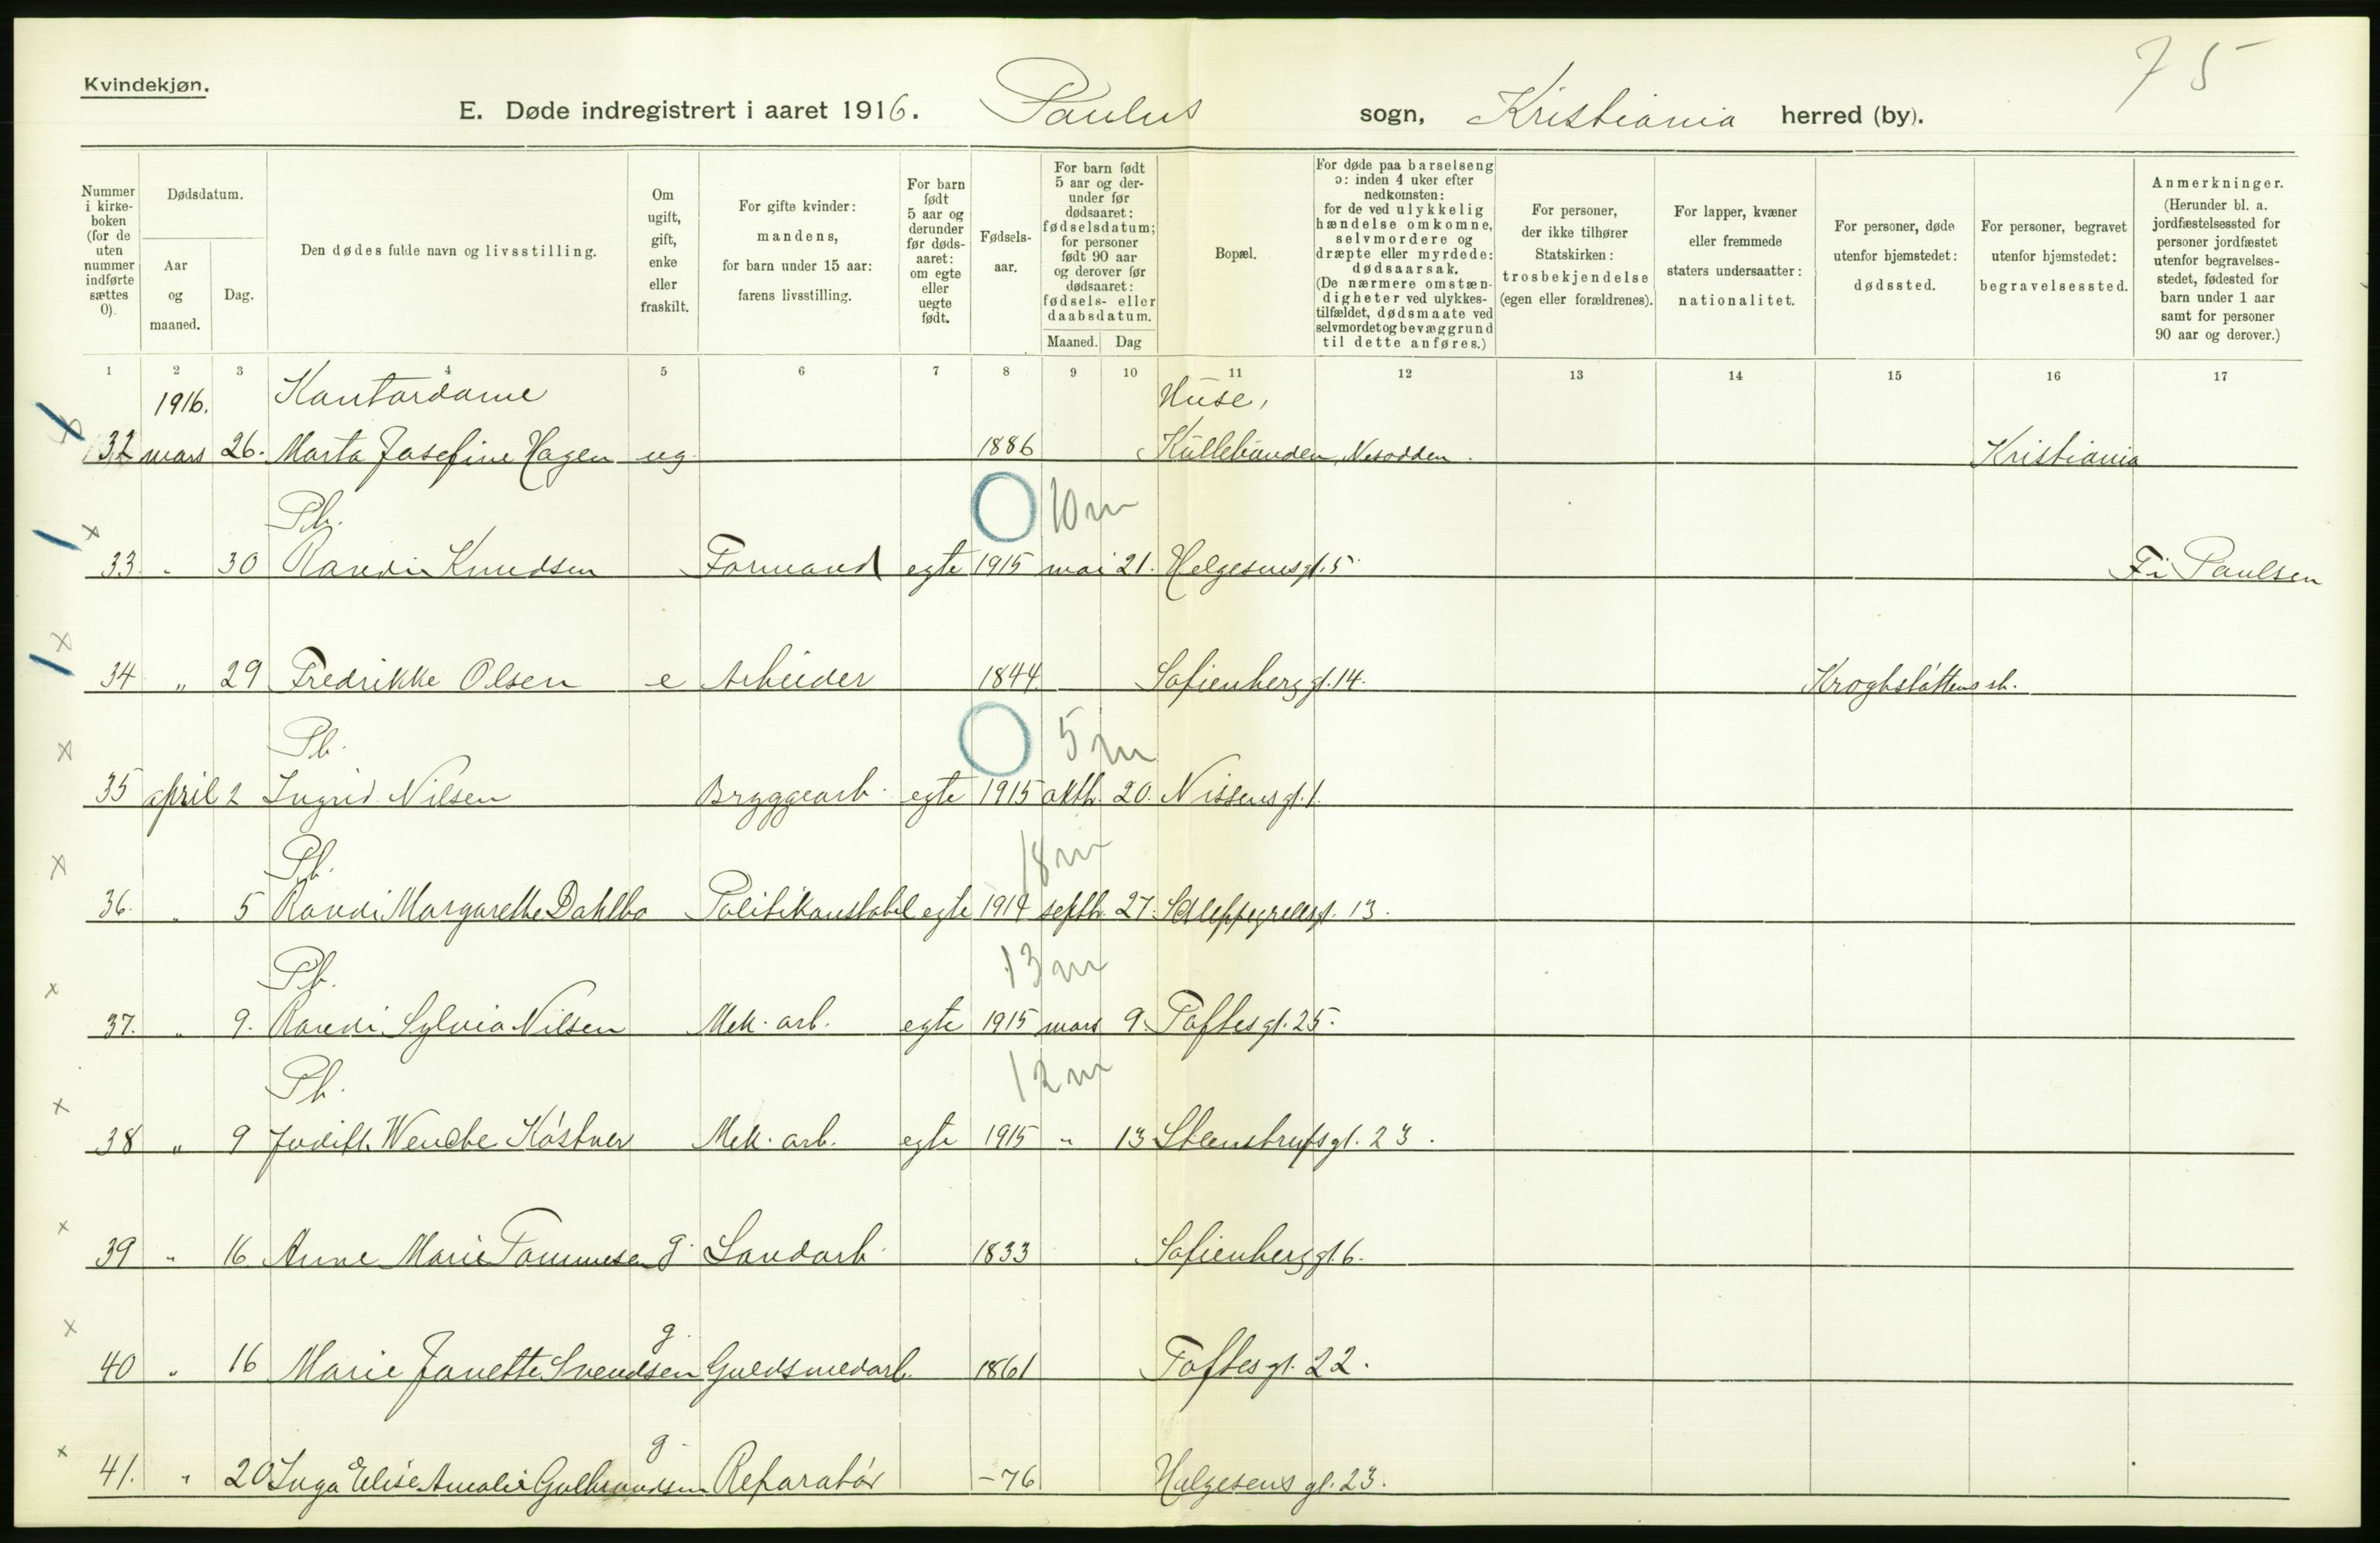 75
Kvindekjøn.
E. Døde indregistrert i aaret 1916. Paulus sogn, Kristiania herred (by).
Nummer i kirkeboken (for de uten nummer indførte sættes 0).
Dødsdatum.
Aar og maaned.
Dag.
Den dødes fulde navn og livsstilling.
Om ugift, gift, enke eller fraskilt.
For gifte kvinder: mandens, for barn under 15 aar: farens livsstilling.
For barn født 5 aar og derunder før dødsaaret: om egte eller uegte født.
Fødselsaar.
For barn født 5 aar og derunder før dødsaaret: fødselsdatum; for personer født 90 aar og derover før dødsaaret: fødsels- eller daabsdatum.
Maaned. Dag
Bopæl.
For døde paa barselseng ɔ: inden 4 uker efter nedkomsten: for de ved ulykkelig hændelse omkomne, selvmordere og dræpte eller myrdede: dødsaarsak. (De nærmere omstændigheter ved ulykkestilfældet, dødsmaate ved selvmordet og bevæggrund til dette anføres.)
For personer, der ikke tilhører Statskirken: trosbekjendelse (egen eller forældrenes).
For lapper, kvæner eller fremmede staters undersaatter: nationalitet.
For personer, døde utenfor hjemstedet: dødssted.
For personer, begravet utenfor hjemstedet: begravelsessted.
Anmerkninger. (Herunder bl. a. jordfæstelsessted for personer jordfæstet utenfor begravelsesstedet, fødested for barn under 1 aar samt for personer 90 aar og derover.)
1 2 3 4 5 6 7 8 9 10 11 12 13 14 15 16 17
1916. Kontordame Huse,
32 mars 26. Marta Josefine Hagen ug 1886 Nesodden. Kristiania
Pb. 10 m
33. " 30 Randi Knudsen Formand egte 1915 mai 21. Helgesensgt. 5 Fi Paulsen
34 " 29 Fredrikke Olsen e Arbeider 1844 Sofienberggt. 14. Kroghstøttens sh.
Pb. 5 m
35 april 2 Ingrid Nilsen Bryggearb. egte 1915 oktb. 20. Nissens gt. 1.
Pb. 18 m
36. " 5 Randi Margarethe Dahlbo Politikonstabel egte 1914 septb. 27. Schleppegrellsgt. 13.
Pb. 13 m
37. " 9. Randi Sylvia Nilsen Mek. arb. egte 1915 mars 9. Toftesgt. 25.
Pb. 12 m
38 " 9 Judith Wenche Køstner Mek. arb. egte 1915 " 13 Steenstrupsgt. 23.
39 " 16 Anne Marie Tommesen g. Landarb. 1833 Sofienberggt. 6.
40 " 16 Marie Janette Svendsen g. Guldsmedarb. 1861 Toftesgt. 22.
41. " 20 Inga Elise Amalie Gulbrandsen g. Reparatør -76 Helgesens gt. 23.